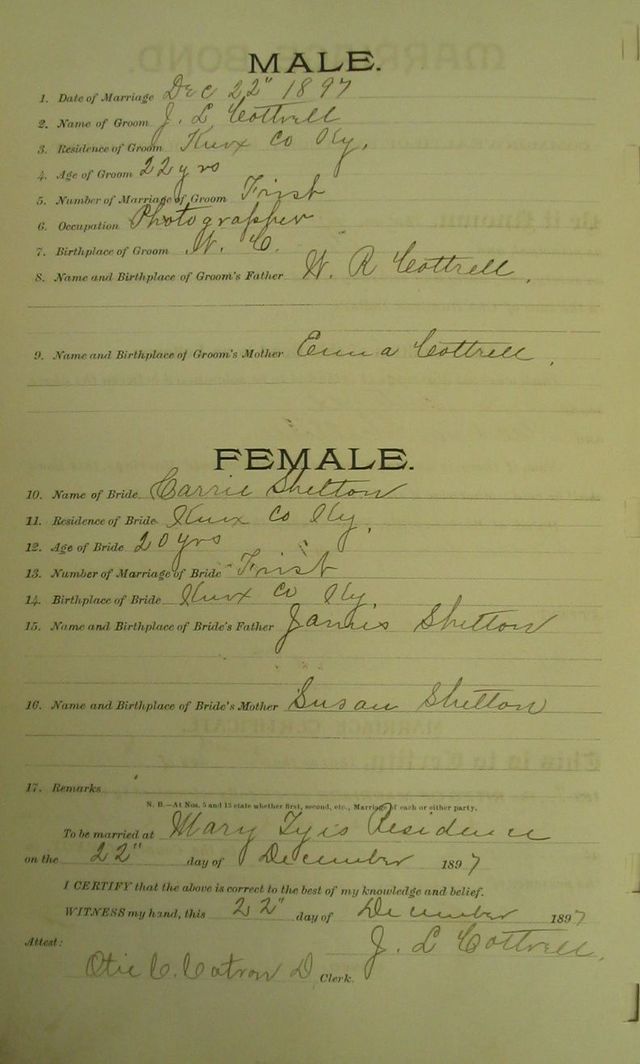 MALE.
1. Date of Marriage Dec 22" 1897
2. Name of Groom J. L Cottrell
3. Residence of Groom Knox Co Ky.
4. Age of Groom 22 yrs
5. Number of Marriage of Groom First
6. Occupation Photographer
7. Birthplace of Groom N. C.
8. Name and Birthplace of Groom's Father W. R Cottrell.
9. Name and Birthplace of Groom's Mother Emma Cottrell.
FEMALE.
10. Name of Bride Carrie Shelton
11. Residence of Bride Knox Co Ky.
12. Age of Bride 20 yrs
13. Number of Marriage of Bride First
14. Birthplace of Bride Knox Co Ky.
15. Name and Birthplace of Bride's Father James Shelton
16. Name and Birthplace of Bride's Mother Susan Shelton
17. Remarks
N. B.—At Nos. 5 and 13 state whether first, second, etc., Marriage of each or either party.
To be married at Mary Residence
on the 22" day of December 1897
I CERTIFY that the above is correct to the best of my knowledge and belief.
WITNESS my hand, this 22" day of December 1897
J. L Cottrell.
Attest:
C. Catron D. Clerk.